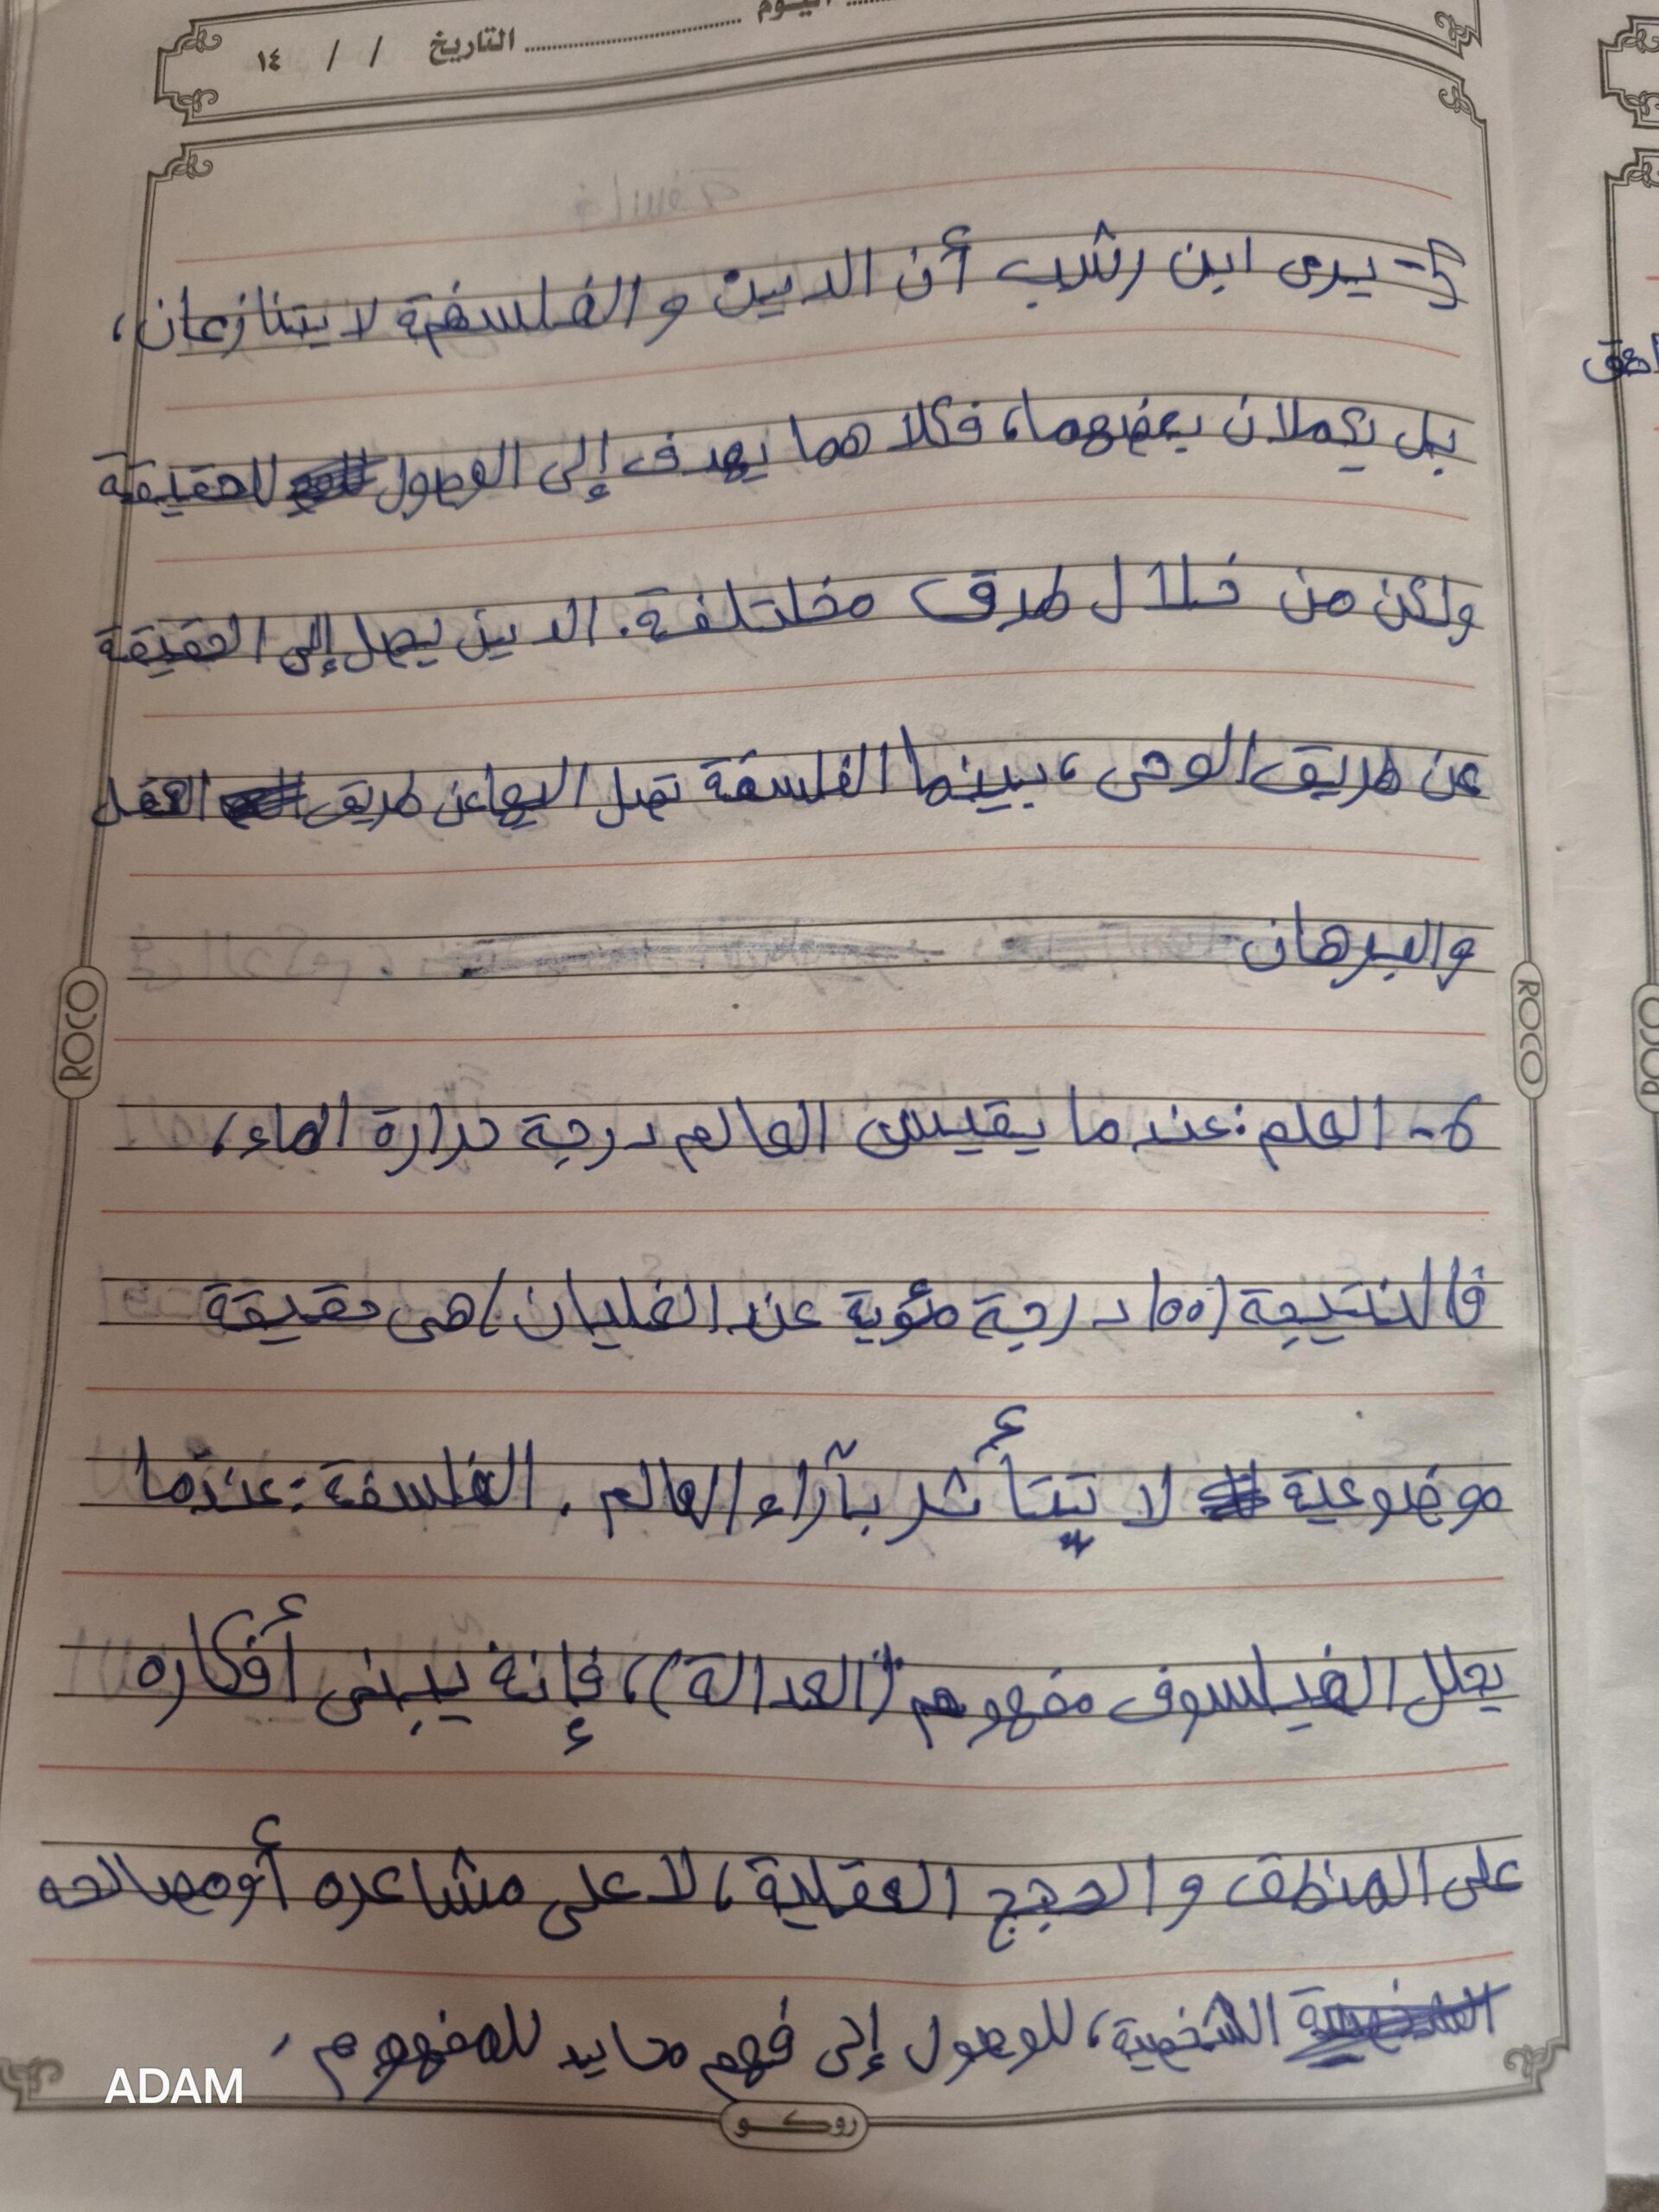 اليوم
التاريخ / / ١٤
5- يرى ابن رشب أن الدين والفلسفة لا يتنازعان،
بل يكملان بعضهما، فكلا هما يهدف إلى الوصول للحقيقة
ولكن من خلال طرق مختلفة. الدين يصل إلى الحقيقة
عن طريق الوحى، بينما الفلسفة تصل اليها عن طريق العقل
والبرهان
6- العلم: عندما يقيس العالم درجة حرارة الماء،
فالنتيجة (100 درجة مئوية عند الغليان) هى حقيقة
موضوعية لا تتأثر بآراء العالم. الفلسفة: عندما
يحلل الفيلسوف مفهوم (العدالة)، فإنة يبنى أفكاره
على المنطق والحجج العقلية، لا على مشاعره أو مصالحه
الشخصية، للوصول إلى فهم محايد للمفهوم.
ROCO
ROCO
روكو
ADAM